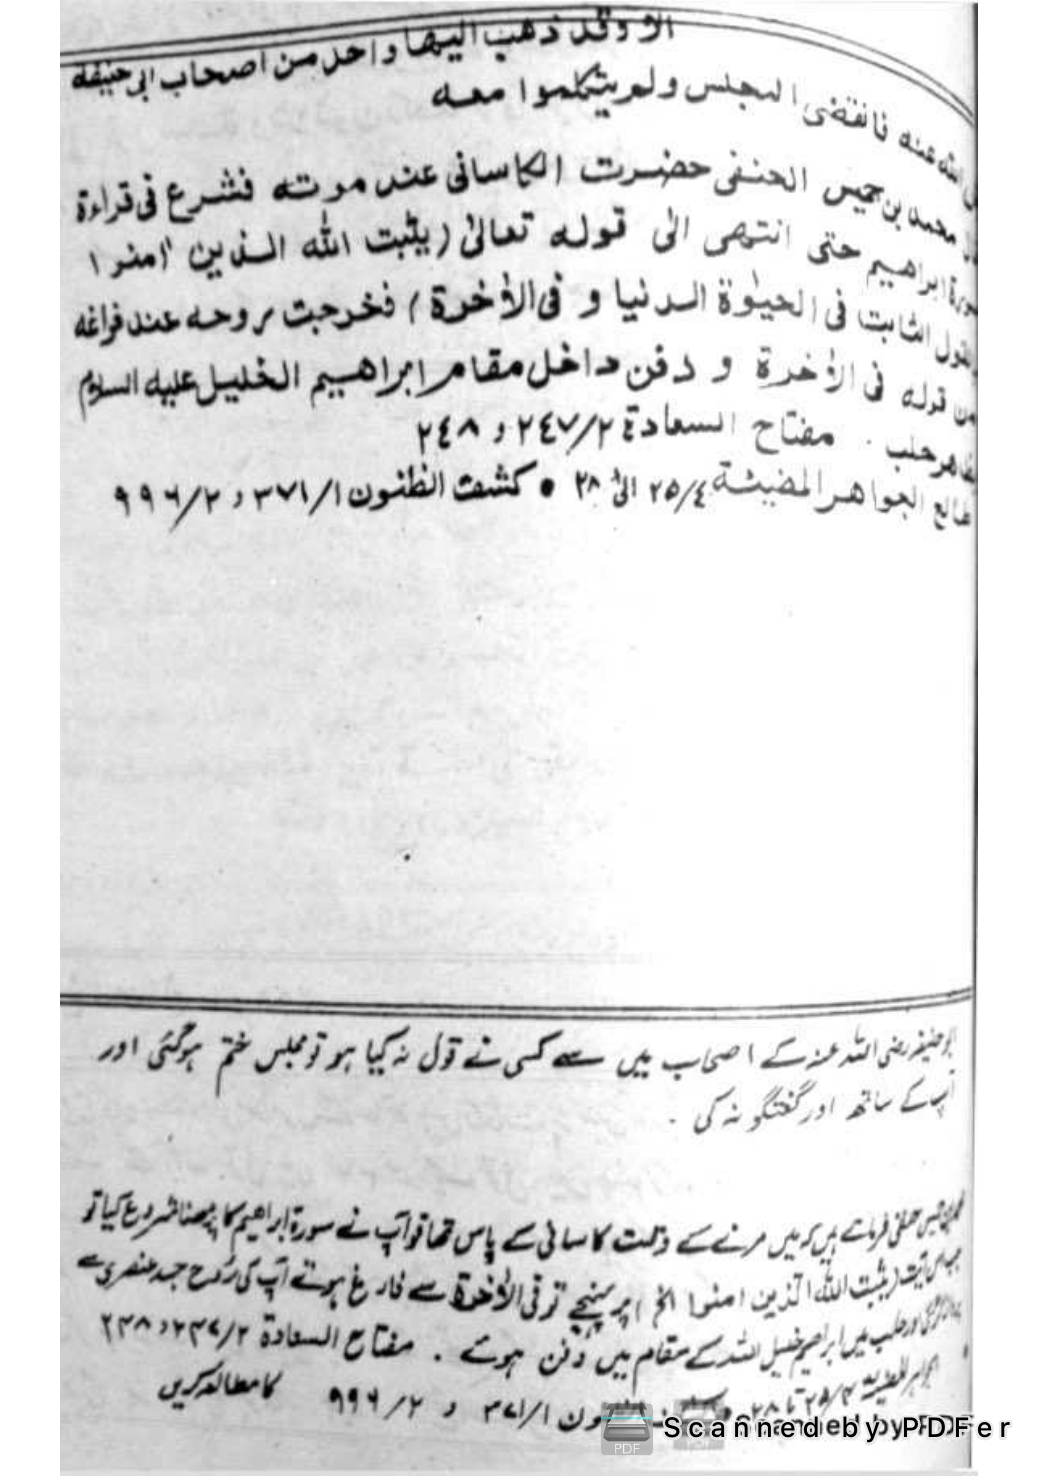 الا وقد ذهب اليها واحد من اصحاب ابی حنیفه
الله عنه فانفضی المجلس ولم یتکلموا معه
محمد بن خمیس الحنفی حضرت الکاسانی عند موته فشرع فی قراءة
سورة ابراهیم حتی انتهی الی قوله تعالیٰ (یثبت الله الذین اٰمنوا
القول الثابت فی الحیوٰة الدنیا و فی الاٰخرة) فخرجت روحه عند فراغه
من قوله فی الاٰخرة و دفن داخل مقام ابراهیم الخلیل علیه السلام
بظاهر حلب ۰ مفتاح السعادة ۲/۲٤۷ و ۲٤۸
طالع الجواهر المضیئة ٤/۲۵ الی ۲۸ • کشف الظنون ۱/۳۷۱ و ۲/۹۹٦
ابوحنیفہ رضی اللہ عنہ کے اصحاب میں سے کسی نے قول نہ کیا ہو تو مجلس ختم ہوگئی اور
آپ کے ساتھ اور گفتگو نہ کی ۔
حنفی فرماتے ہیں کہ میں مرنے کے وقت کاسانی کے پاس تھا تو آپ نے سورۃ ابراھیم کا پڑھنا شروع کیا تو
جب اس آیت (یثبت اللہ الذین امنوا الخ) پر پہنچے تو فی الاٰخرۃ سے فارغ ہوتے آپ کی روح جسد عنصری سے
اور حلب میں ابراھیم خلیل اللہ کے مقام میں دفن ہوئے ۔ مفتاح السعادۃ ۲/۲۳۷ و ۲۳۸
الجواہر المضیہ ۴/۲۵ تا ۲۸ ۱/۳۷۱ و ۲/۹۹۶ کا مطالعہ کریں
Scanned by PDFer